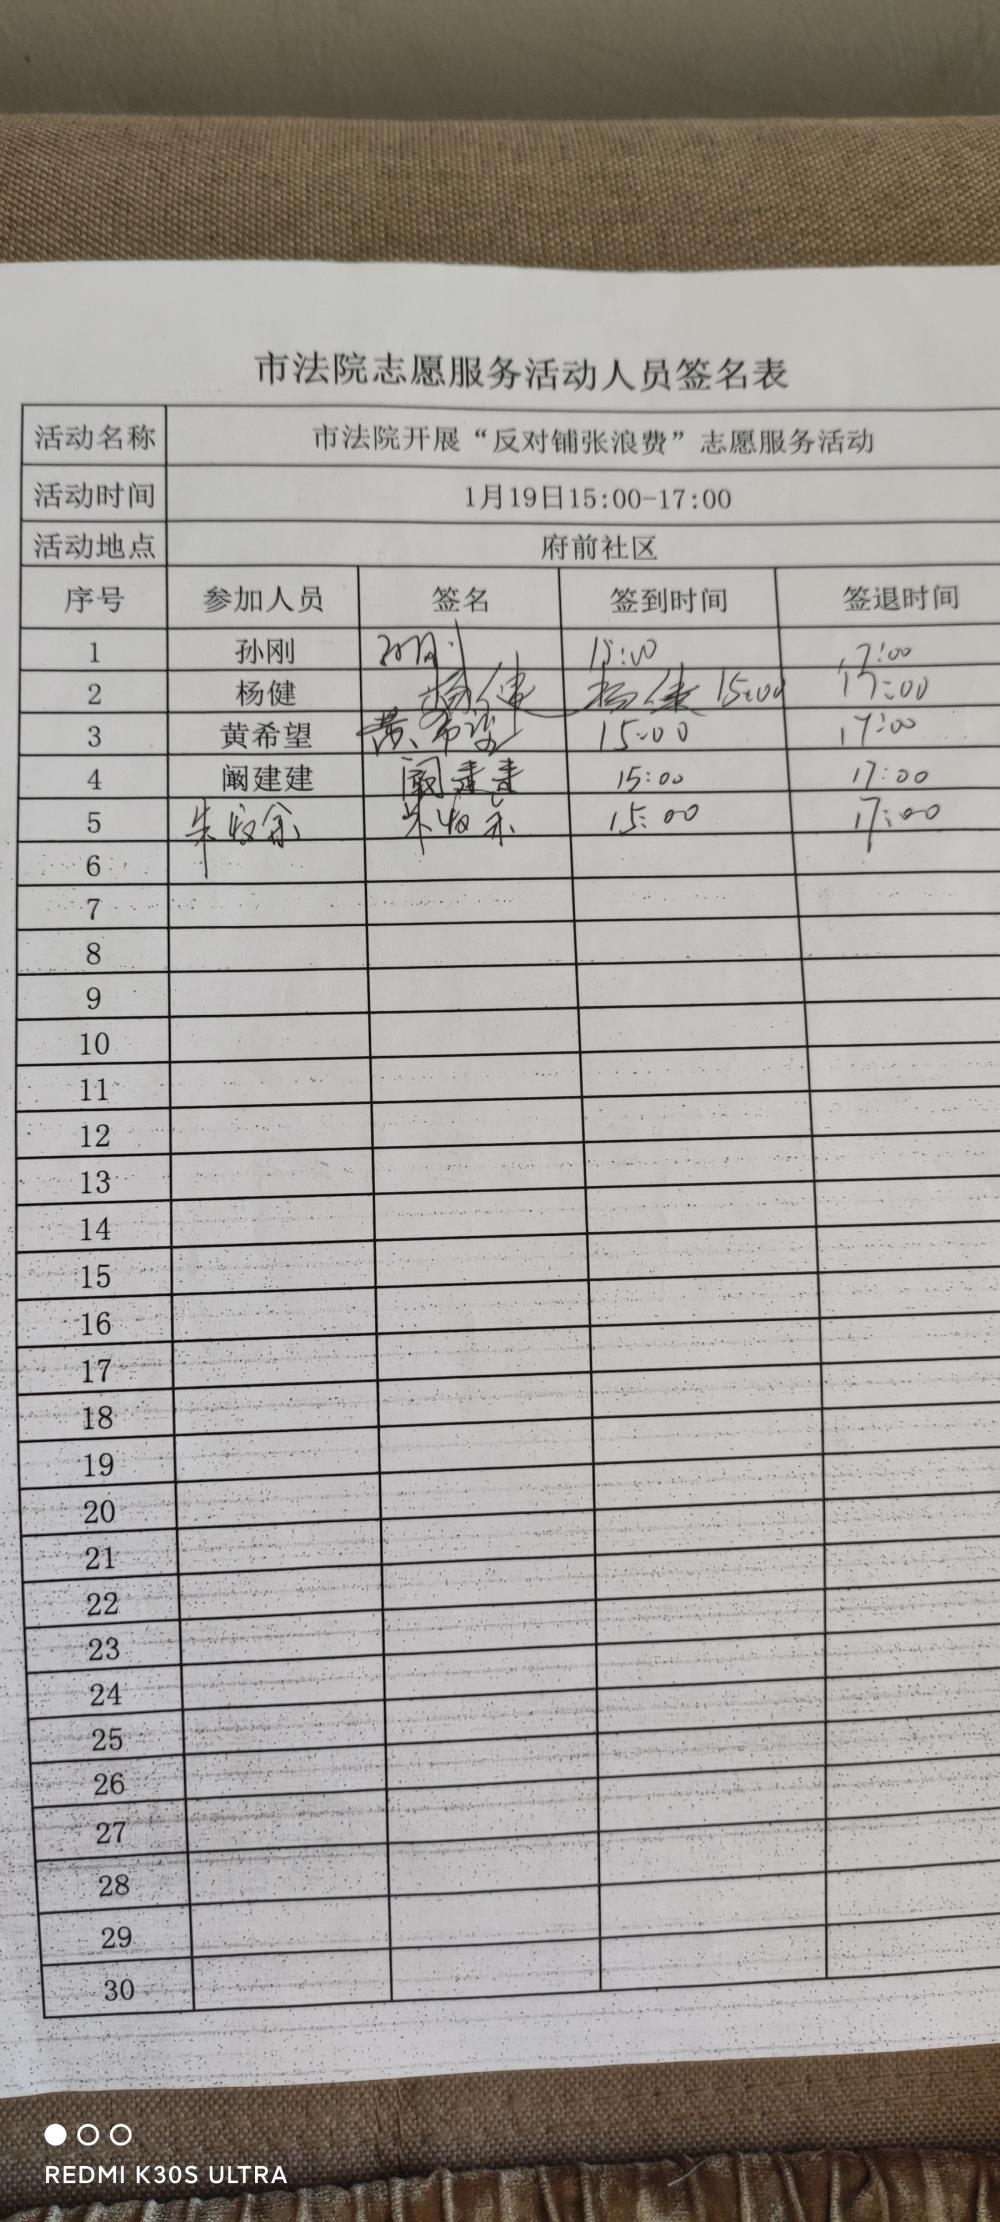 市法院志愿服务活动人员签名表
活动名称 市法院开展“反对铺张浪费”志愿服务活动
活动时间 1月19日15:00-17:00
活动地点 府前社区
序号 参加人员 签名 签到时间 签退时间
1 孙刚 孙刚 15:00 17:00
2 杨健 杨健 杨健 15:00 17:00
3 黄希望 黄希望 15:00 17:00
4 阚建建 阚建建 15:00 17:00
5 15:00 17:00
6
7
8
9
10
11
12
13
14
15
16
17
18
19
20
21
22
23
24
25
26
27
28
29
30
REDMI K30S ULTRA